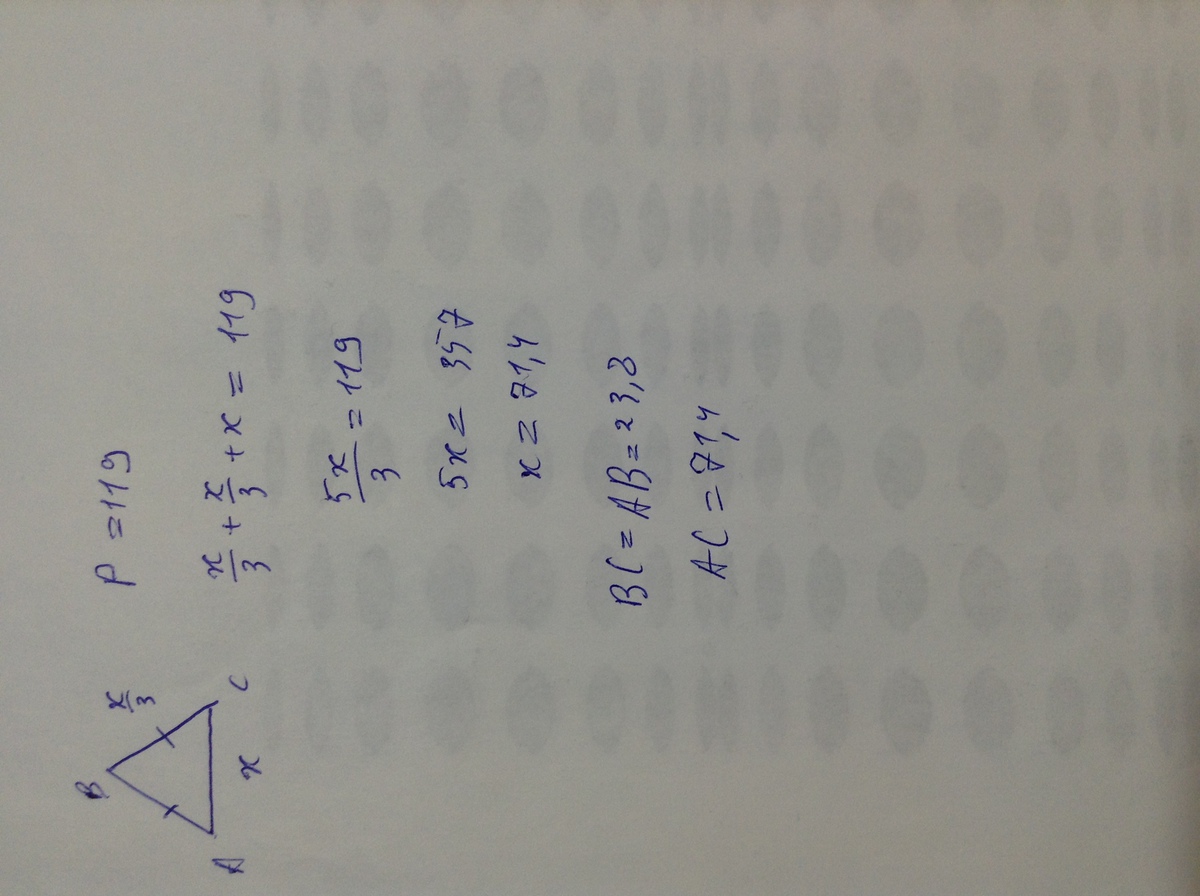 B
x/3
A
C
x
P = 119
x/3 + x/3 + x = 119
5x/3 = 119
5x = 357
x = 71,4
BC = AB = 23,8
AC = 71,4